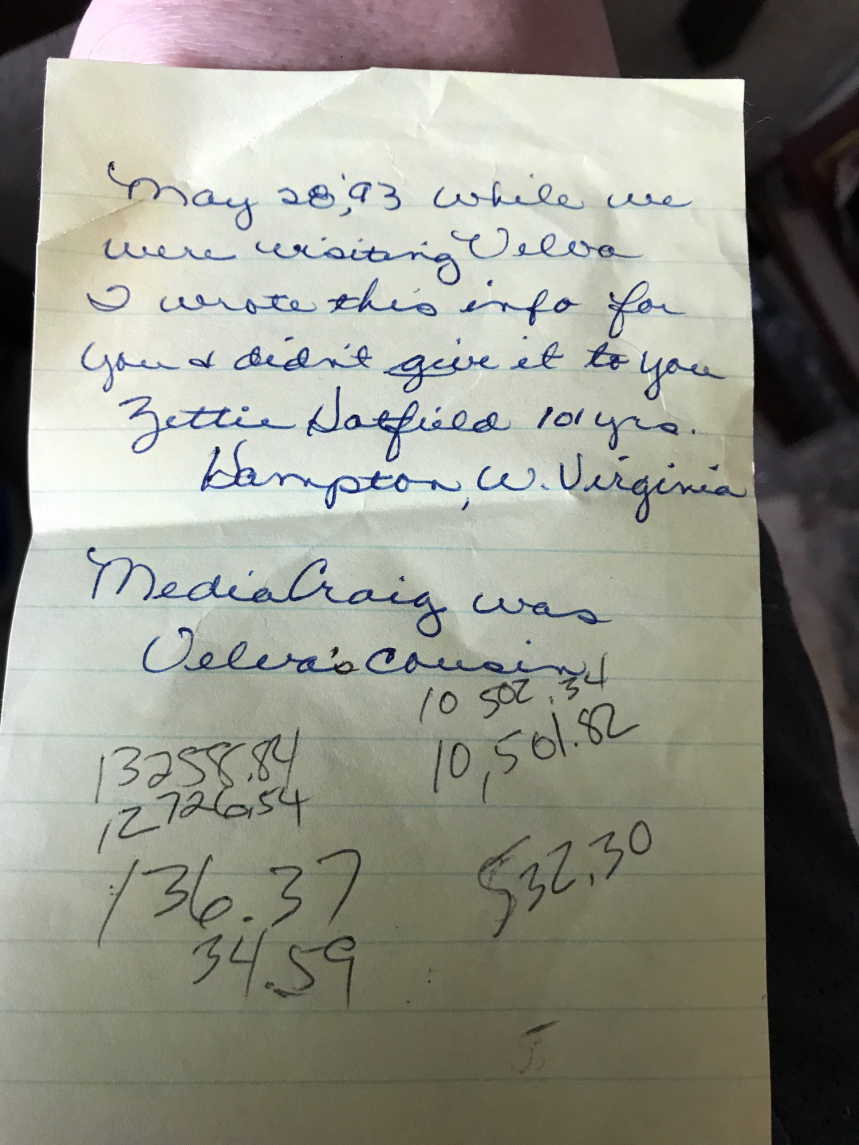 May 28, '93 while we
were visiting Velva
I wrote this info for
you & didn't give it to you
Zettie Hatfield 101 yrs.
Hampton, W. Virginia
Media Craig was
Velva's cousin
10 502.34
10,501.82
13258.84
12726.54
136.37
532.30
34.59